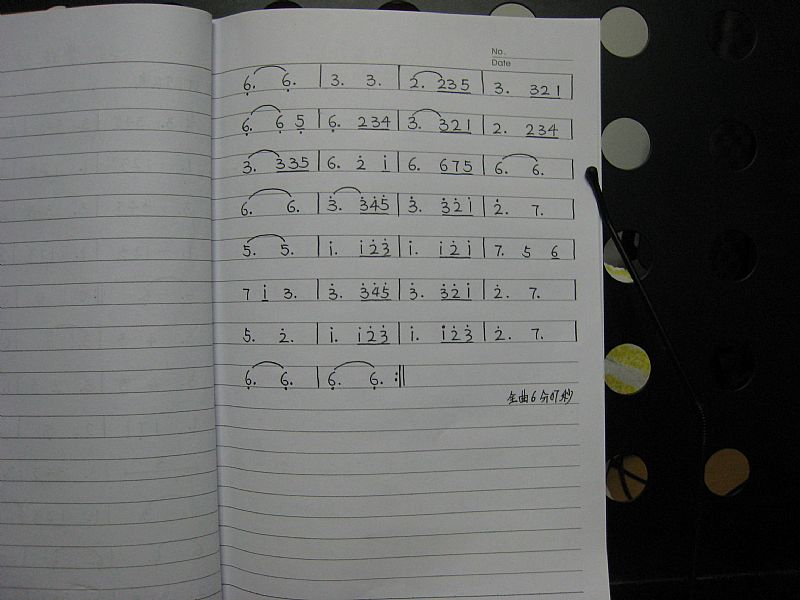 No.
Date
6̣. 6̣. | 3. 3. | 2. 235 | 3. 321 |
6̣. 6̣ 5̣ | 6̣. 234 | 3. 321 | 2. 234 |
3. 335 | 6. 2̇ i | 6. 675 | 6. 6. |
6. 6. | 3̇. 3̇4̇5̇ | 3̇. 3̇2̇i | 2̇. 7. |
5. 5. | i. i2̇3̇ | i. i2̇i | 7. 5 6 |
7 i 3. | 3̇. 3̇4̇5̇ | 3̇. 3̇2̇i | 2̇. 7. |
5. 2̇. | i. i2̇3̇ | i. i2̇3̇ | 2̇. 7. |
6̣. 6̣. | 6̣. 6̣. :||
全曲6分07秒